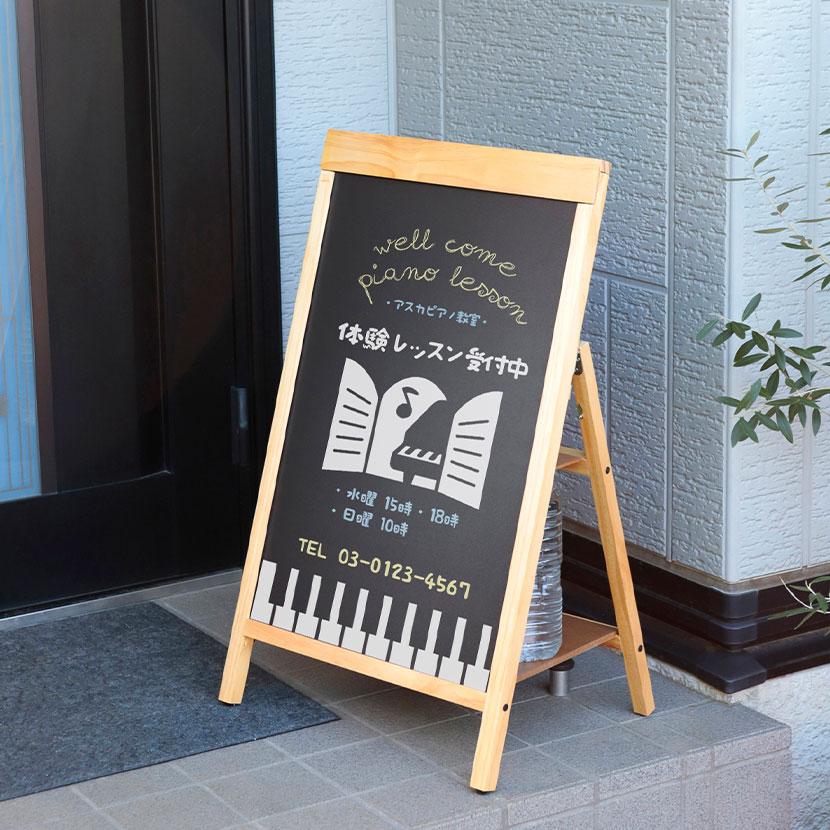 well come
piano lesson
・アスカピアノ教室・
体験レッスン受付中
・水曜 15時・18時
・日曜 10時
TEL 03-0123-4567